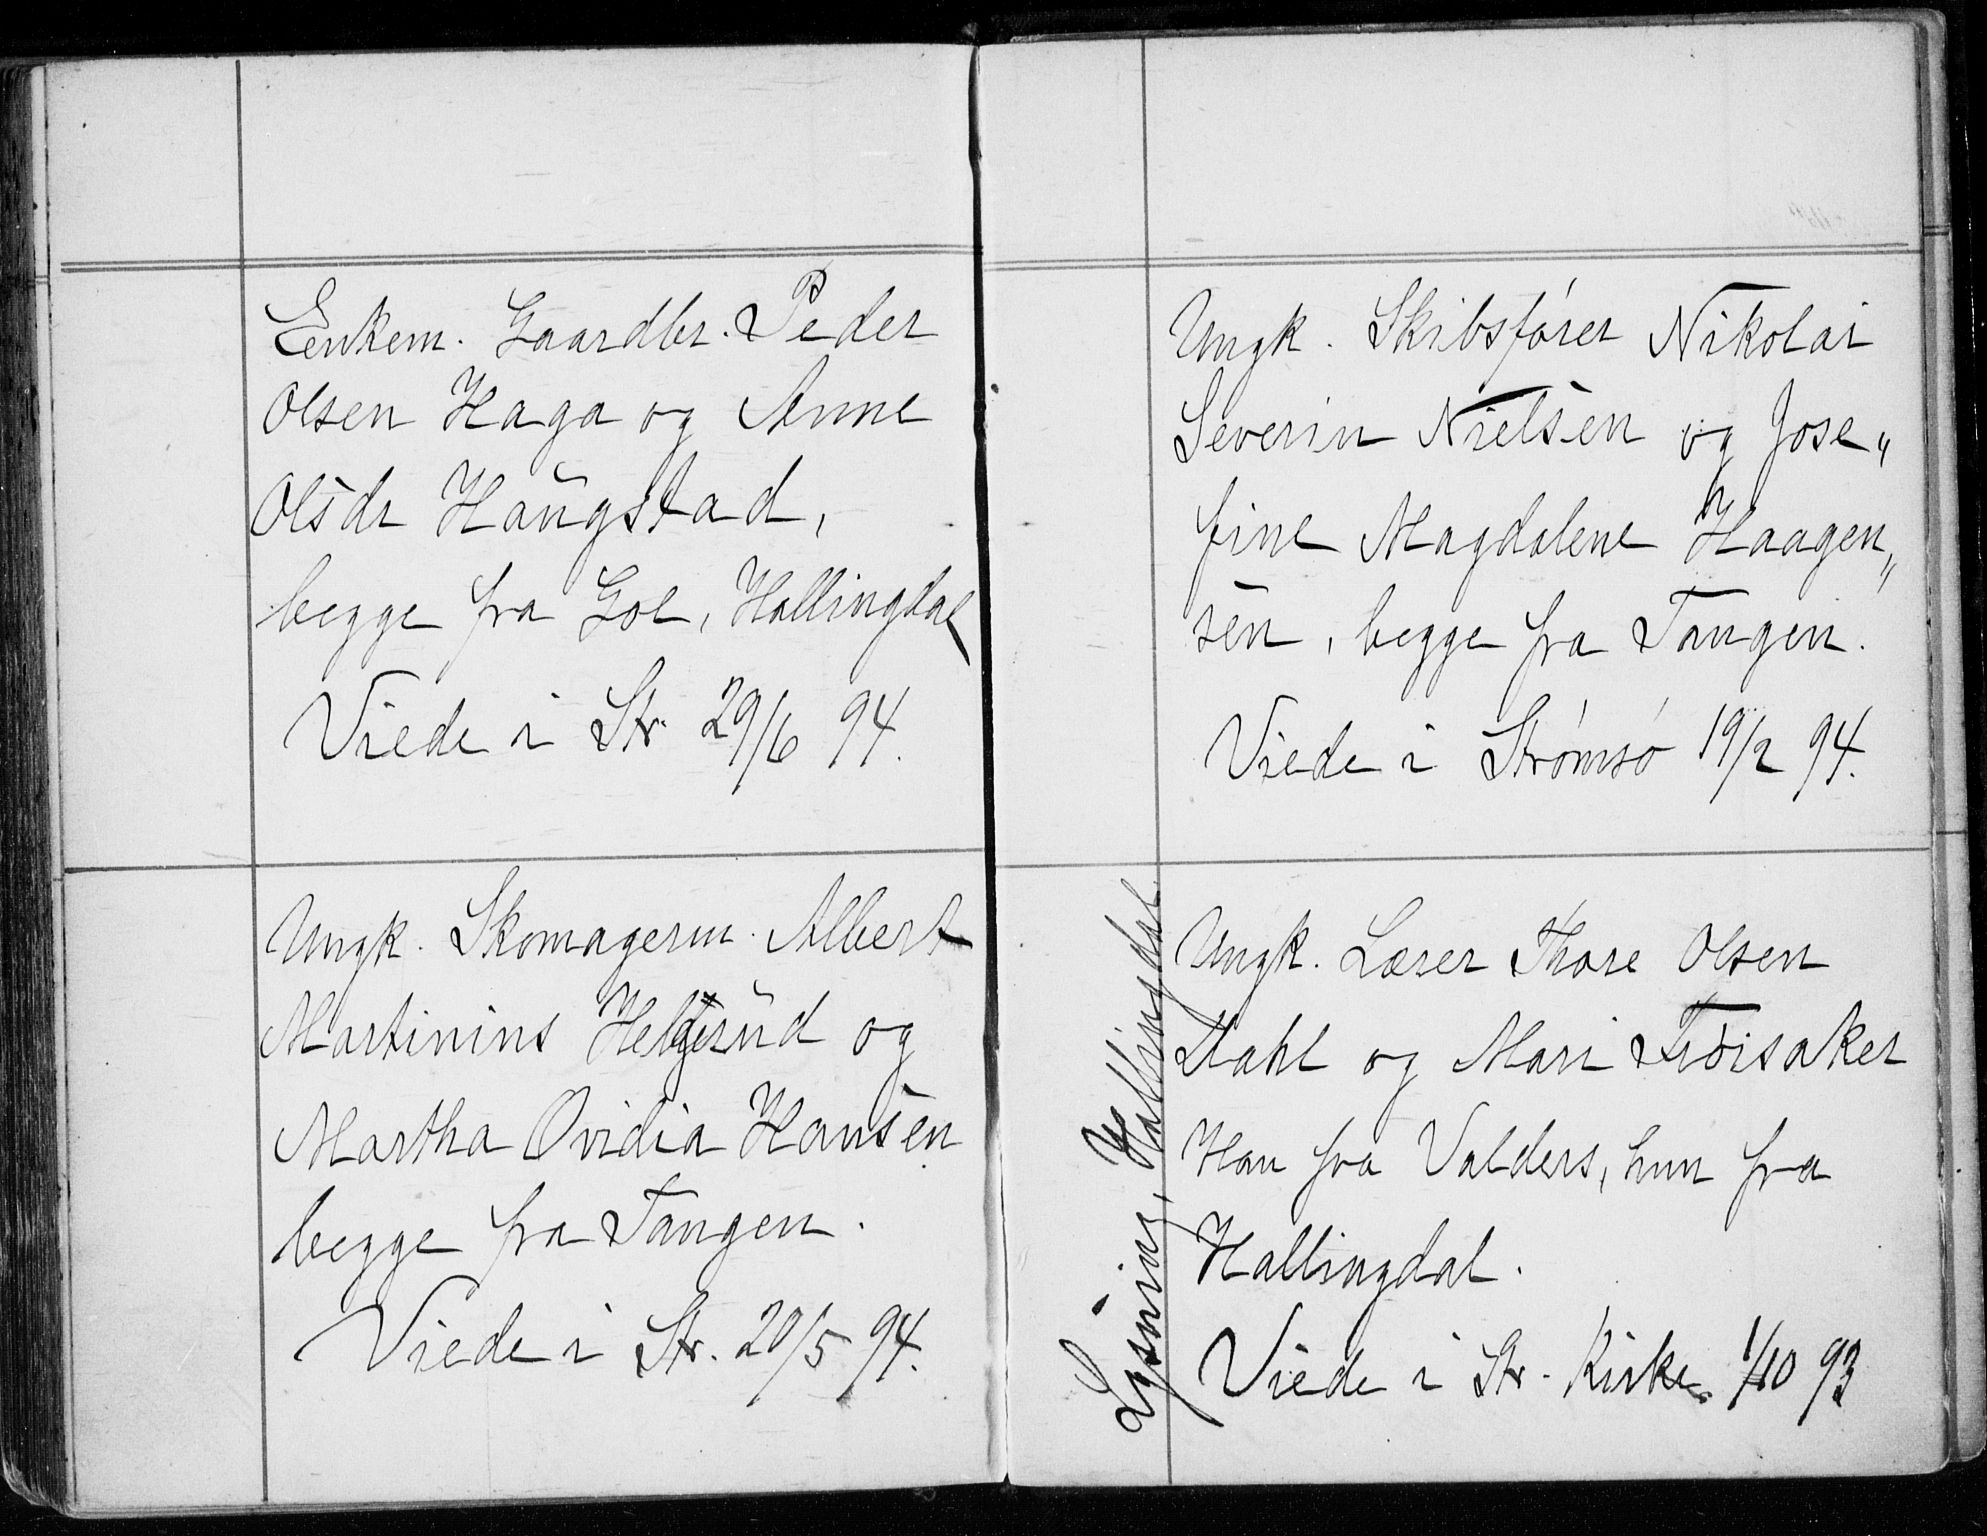 Enkem. Gaardbr. Peder
Olsen Haga og Anne
Olsdr Haugstad,
begge fra Gol, Hallingdal
Viede i Str. 29/6 94.
Ungk. Skomagersv. Albert
Martinius Helgerud og
Martha Ovidia Hansen
begge fra Tangen.
Viede i Str. 20/5 94.
Ungk. Skibsfører Nikolai
Severin Nielsen og Jose„
fine Magdalene Haagen„
sen, begge fra Tangen.
Viede i Strømsø 19/2 94.
Lysning, Hallingdal.
Ungk. Lærer Thore Olsen
Dahl og Mari Frøisaker
Han fra Valders, hun fra
Hallingdal.
Viede i Str. Kirke 1/10 93